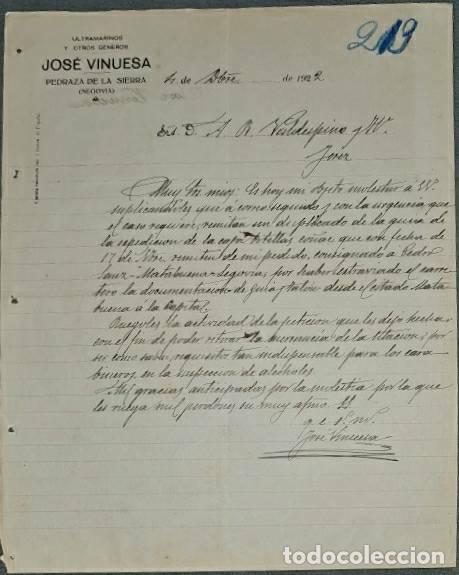 ULTRAMARINOS
Y OTROS GÉNEROS
JOSÉ VINUESA
PEDRAZA DE LA SIERRA
(SEGOVIA)
219
4 de Dbre de 1922
Srs. D. A. R. Valdespino y Hº
Jerez
Muy Srs mios: Es hoy mi objeto molestar á VV.
suplicandoles que á correo seguido y con la urgencia que
el caso requiere, remitan un duplicado de la guia de
la expedicion de la caja botellas coñac que con fecha de
17 de Nbre remiten de mi pedido, consignado a Pedro
Sanz - Matabuena - Segovia, por haber extraviado el carre-
tero la documentacion de guia y talon desde el citado Mata
buena á la Capital.
Ruegoles la actividad de la peticion que les dejo hecha
con el fin de poder retirar la mercancia de la estacion; por
ser como saben, requisito tan indispensable para los cara
bineros en la inspeccion de alcoholes.
Mil gracias anticipadas por la molestia por la que
les ruega mil perdones su muy afmo. SS.
q. e. s. m.
José Vinuesa
todocoleccion